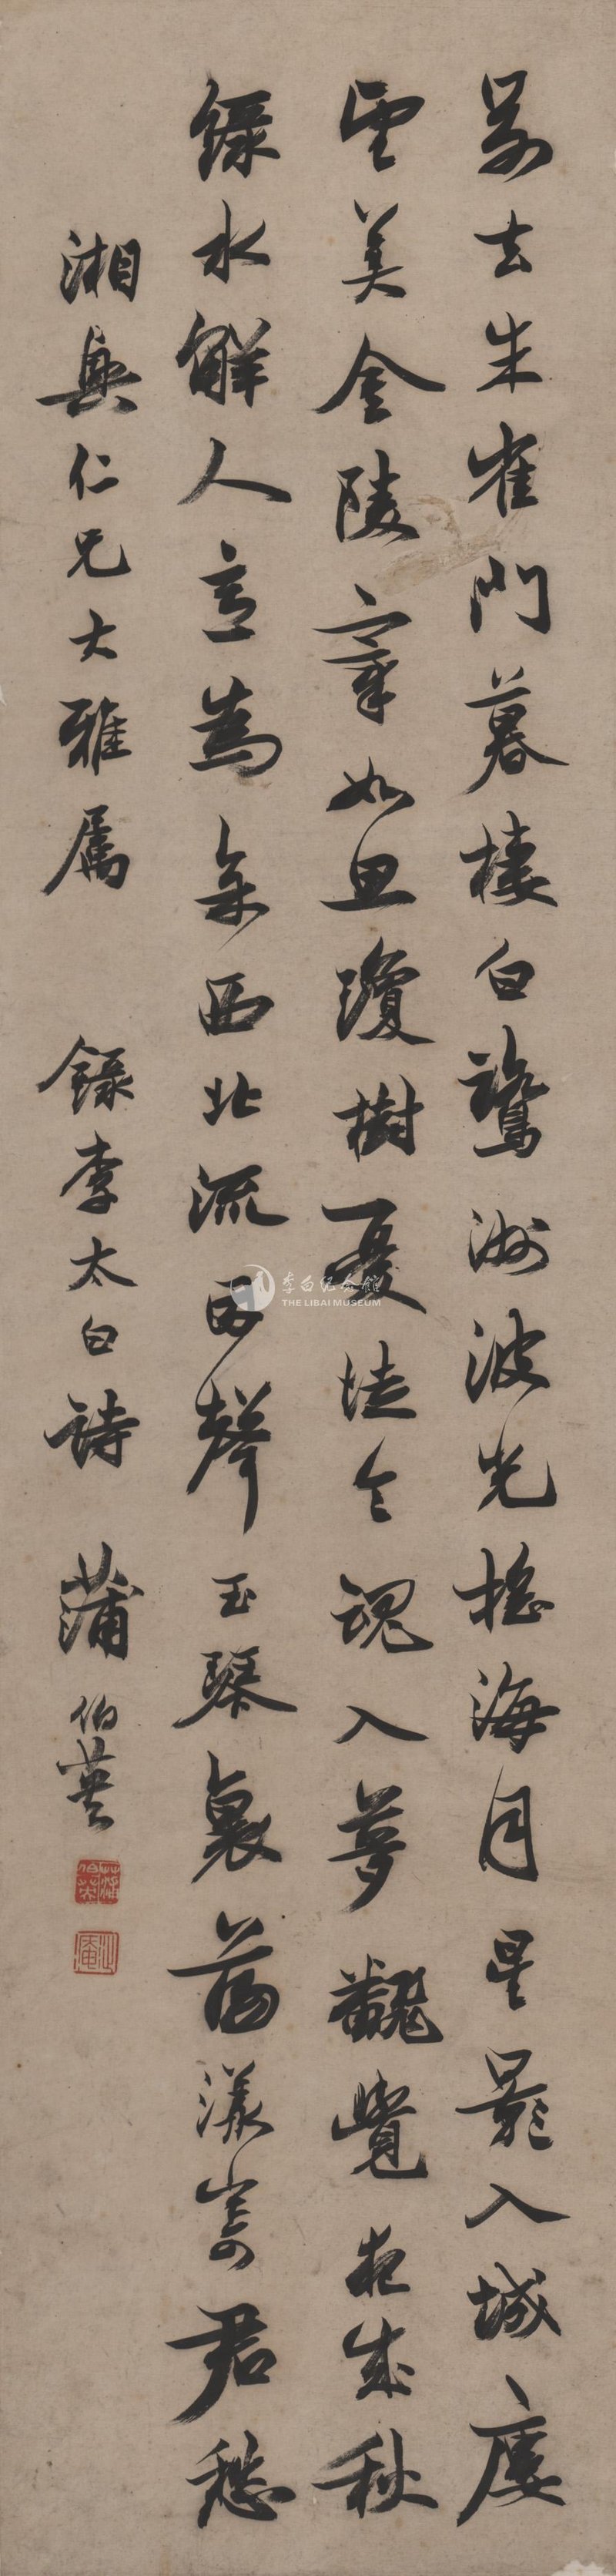 別去朱雀門暮棲白鷺洲波光搖海月星影入城廔
望美金陵宰如思瓊樹憂徒令魂入夢飜覺夜成秋
錄水解人意為余西北流因聲玉琴裏蕩漾寄君愁
湘與仁兄大雅屬 錄李太白詩 蒲伯英
蒲伯英
李白纪念馆
THE LIBAI MUSEUM